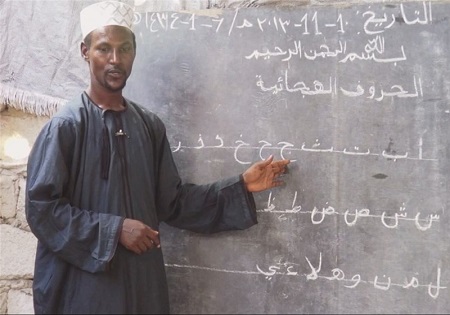 التاريخ: ١-١١-٢٠١٣ م/ ٧-١-١٤٣٤
بسم الله الرحمن الرحيم
الحروف الهجائية
ا ب ت ث ج ح خ د ذ ر
س ش ص ض ط ظ
ل م ن و ه لا ء ي